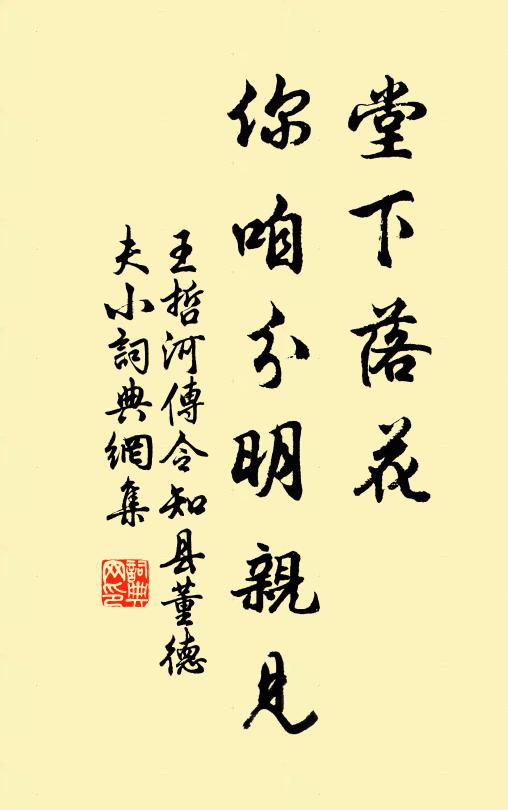 堂下落花
你咱分明親見
王哲河傳令知县董德
夫小詞典網集
詞典網印